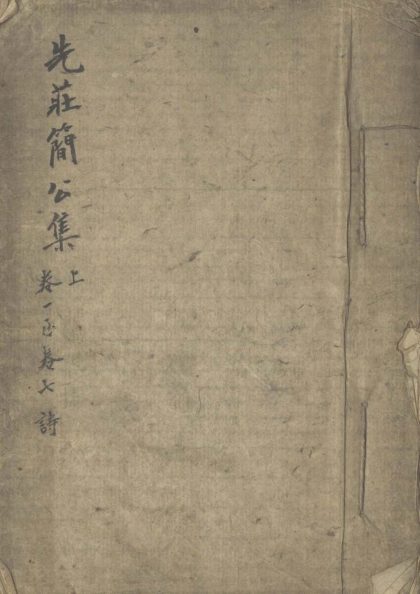 先莊簡公集
上
卷一至卷七詩